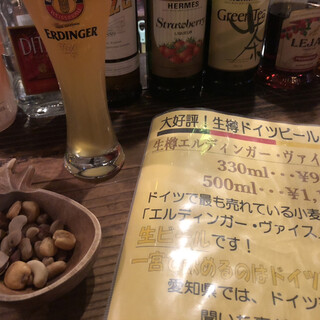 ERDINGER
HERMES
Strawberry
LIQUEUR
HERMES
Green Tea
LEJA
大好評！生樽ドイツビール
生樽エルディンガー・ヴァイ
330ml・・・¥9
500ml・・・¥1,
ドイツで最も売れている小麦
「エルディンガー・ヴァイス」
生ビールです！
一宮で飲めるのはドイツ
愛知県では、ドイツ